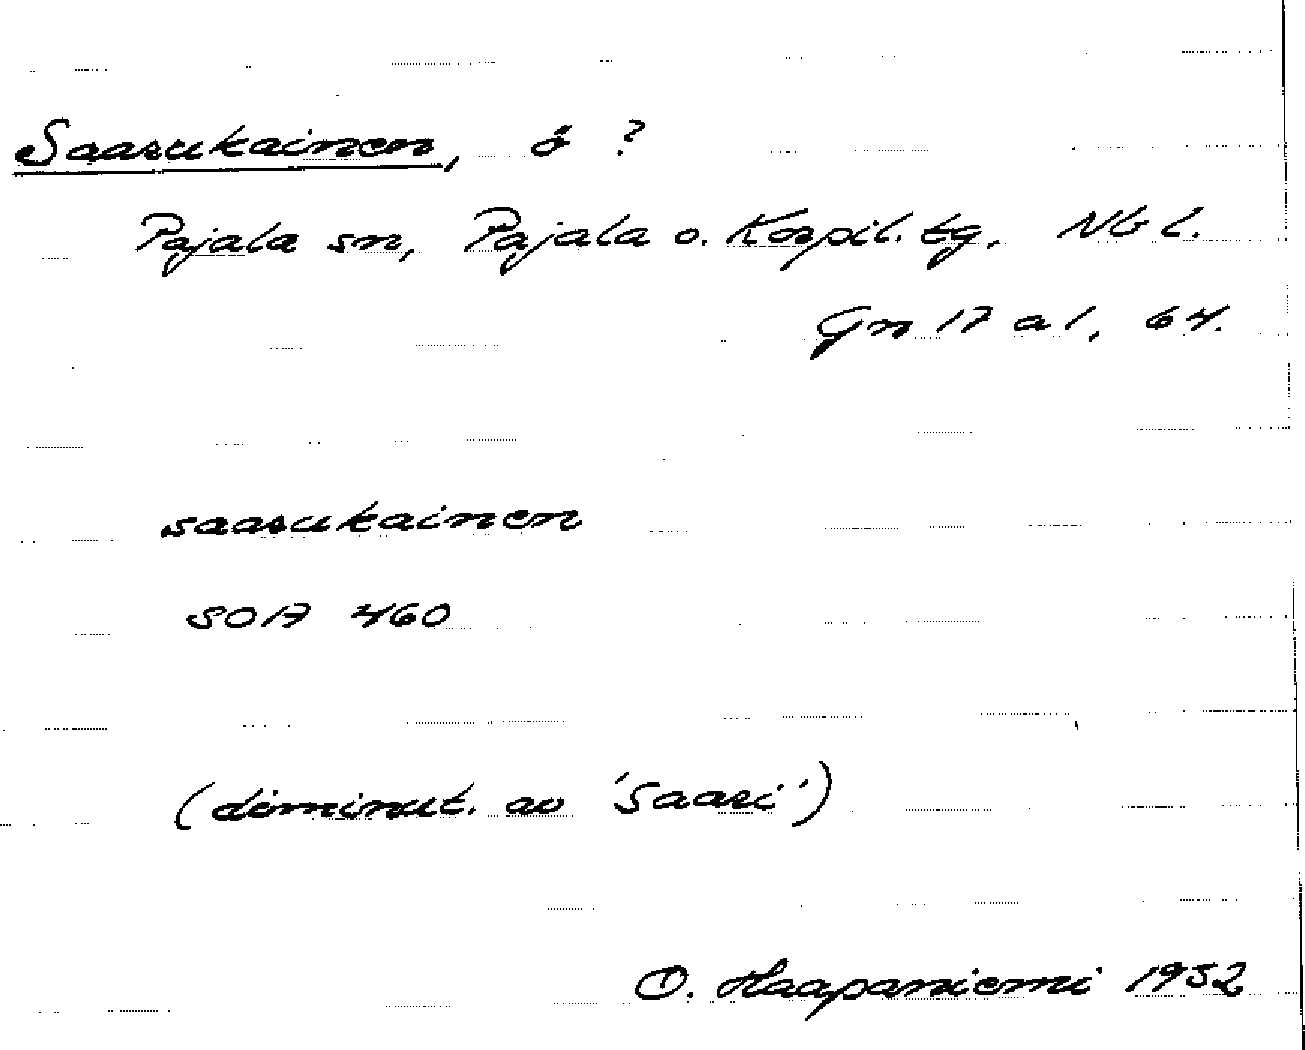 Saarukainen, ö ?
Pajala sn, Pajala o. Korpil. tg, Nb l.
Gn 17 a 1, 64.
saarukainen
SOA 460
(diminut. av 'saari')
O. Haapaniemi 1952